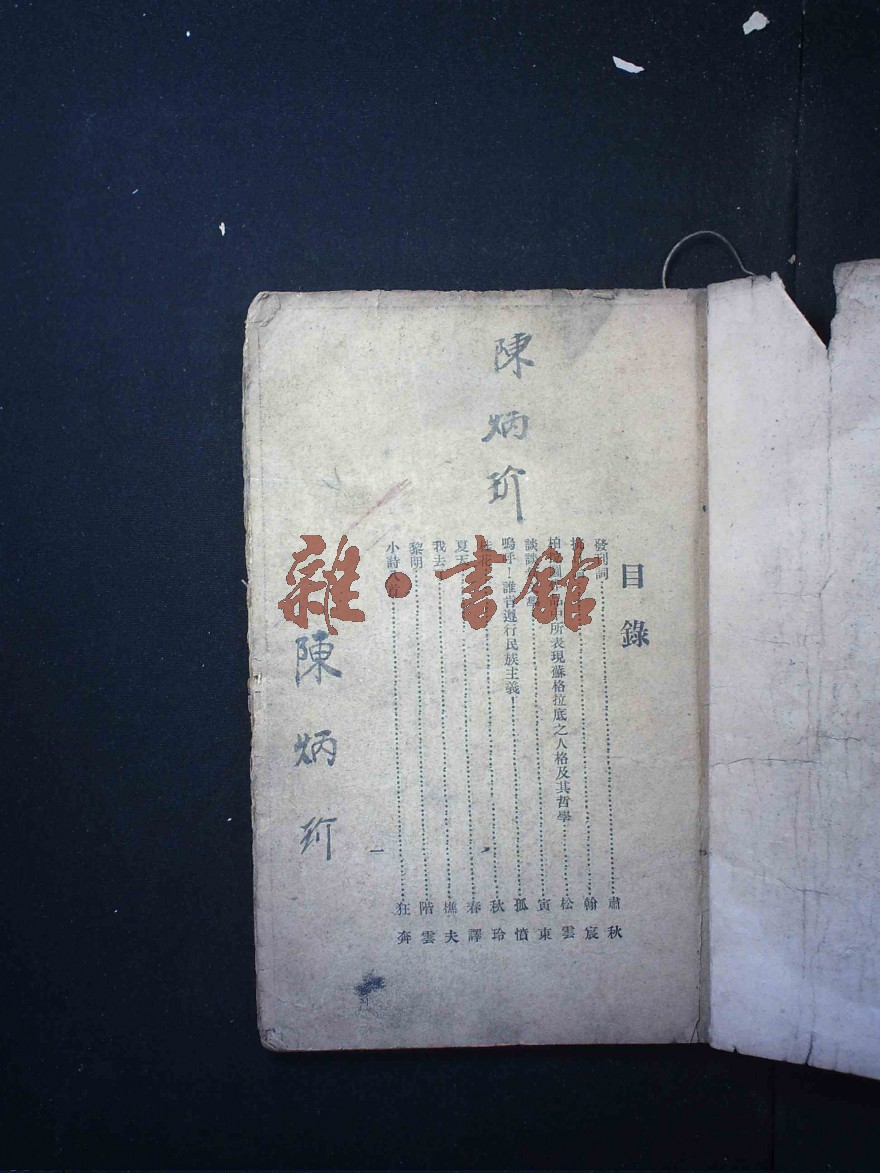 陳炳玠
目錄
發刊詞……肅秋
……翰宸
柏拉圖作品中所表現蘇格拉底之人格及其哲學……松雲
談談……學……寅東
嗚呼！誰肯遵行民族主義……孤憤
……秋玲
夏天……春譯
我去……樵夫
黎明……階雲
小詩……首……狂奔
一
陳炳玠
雜·書館